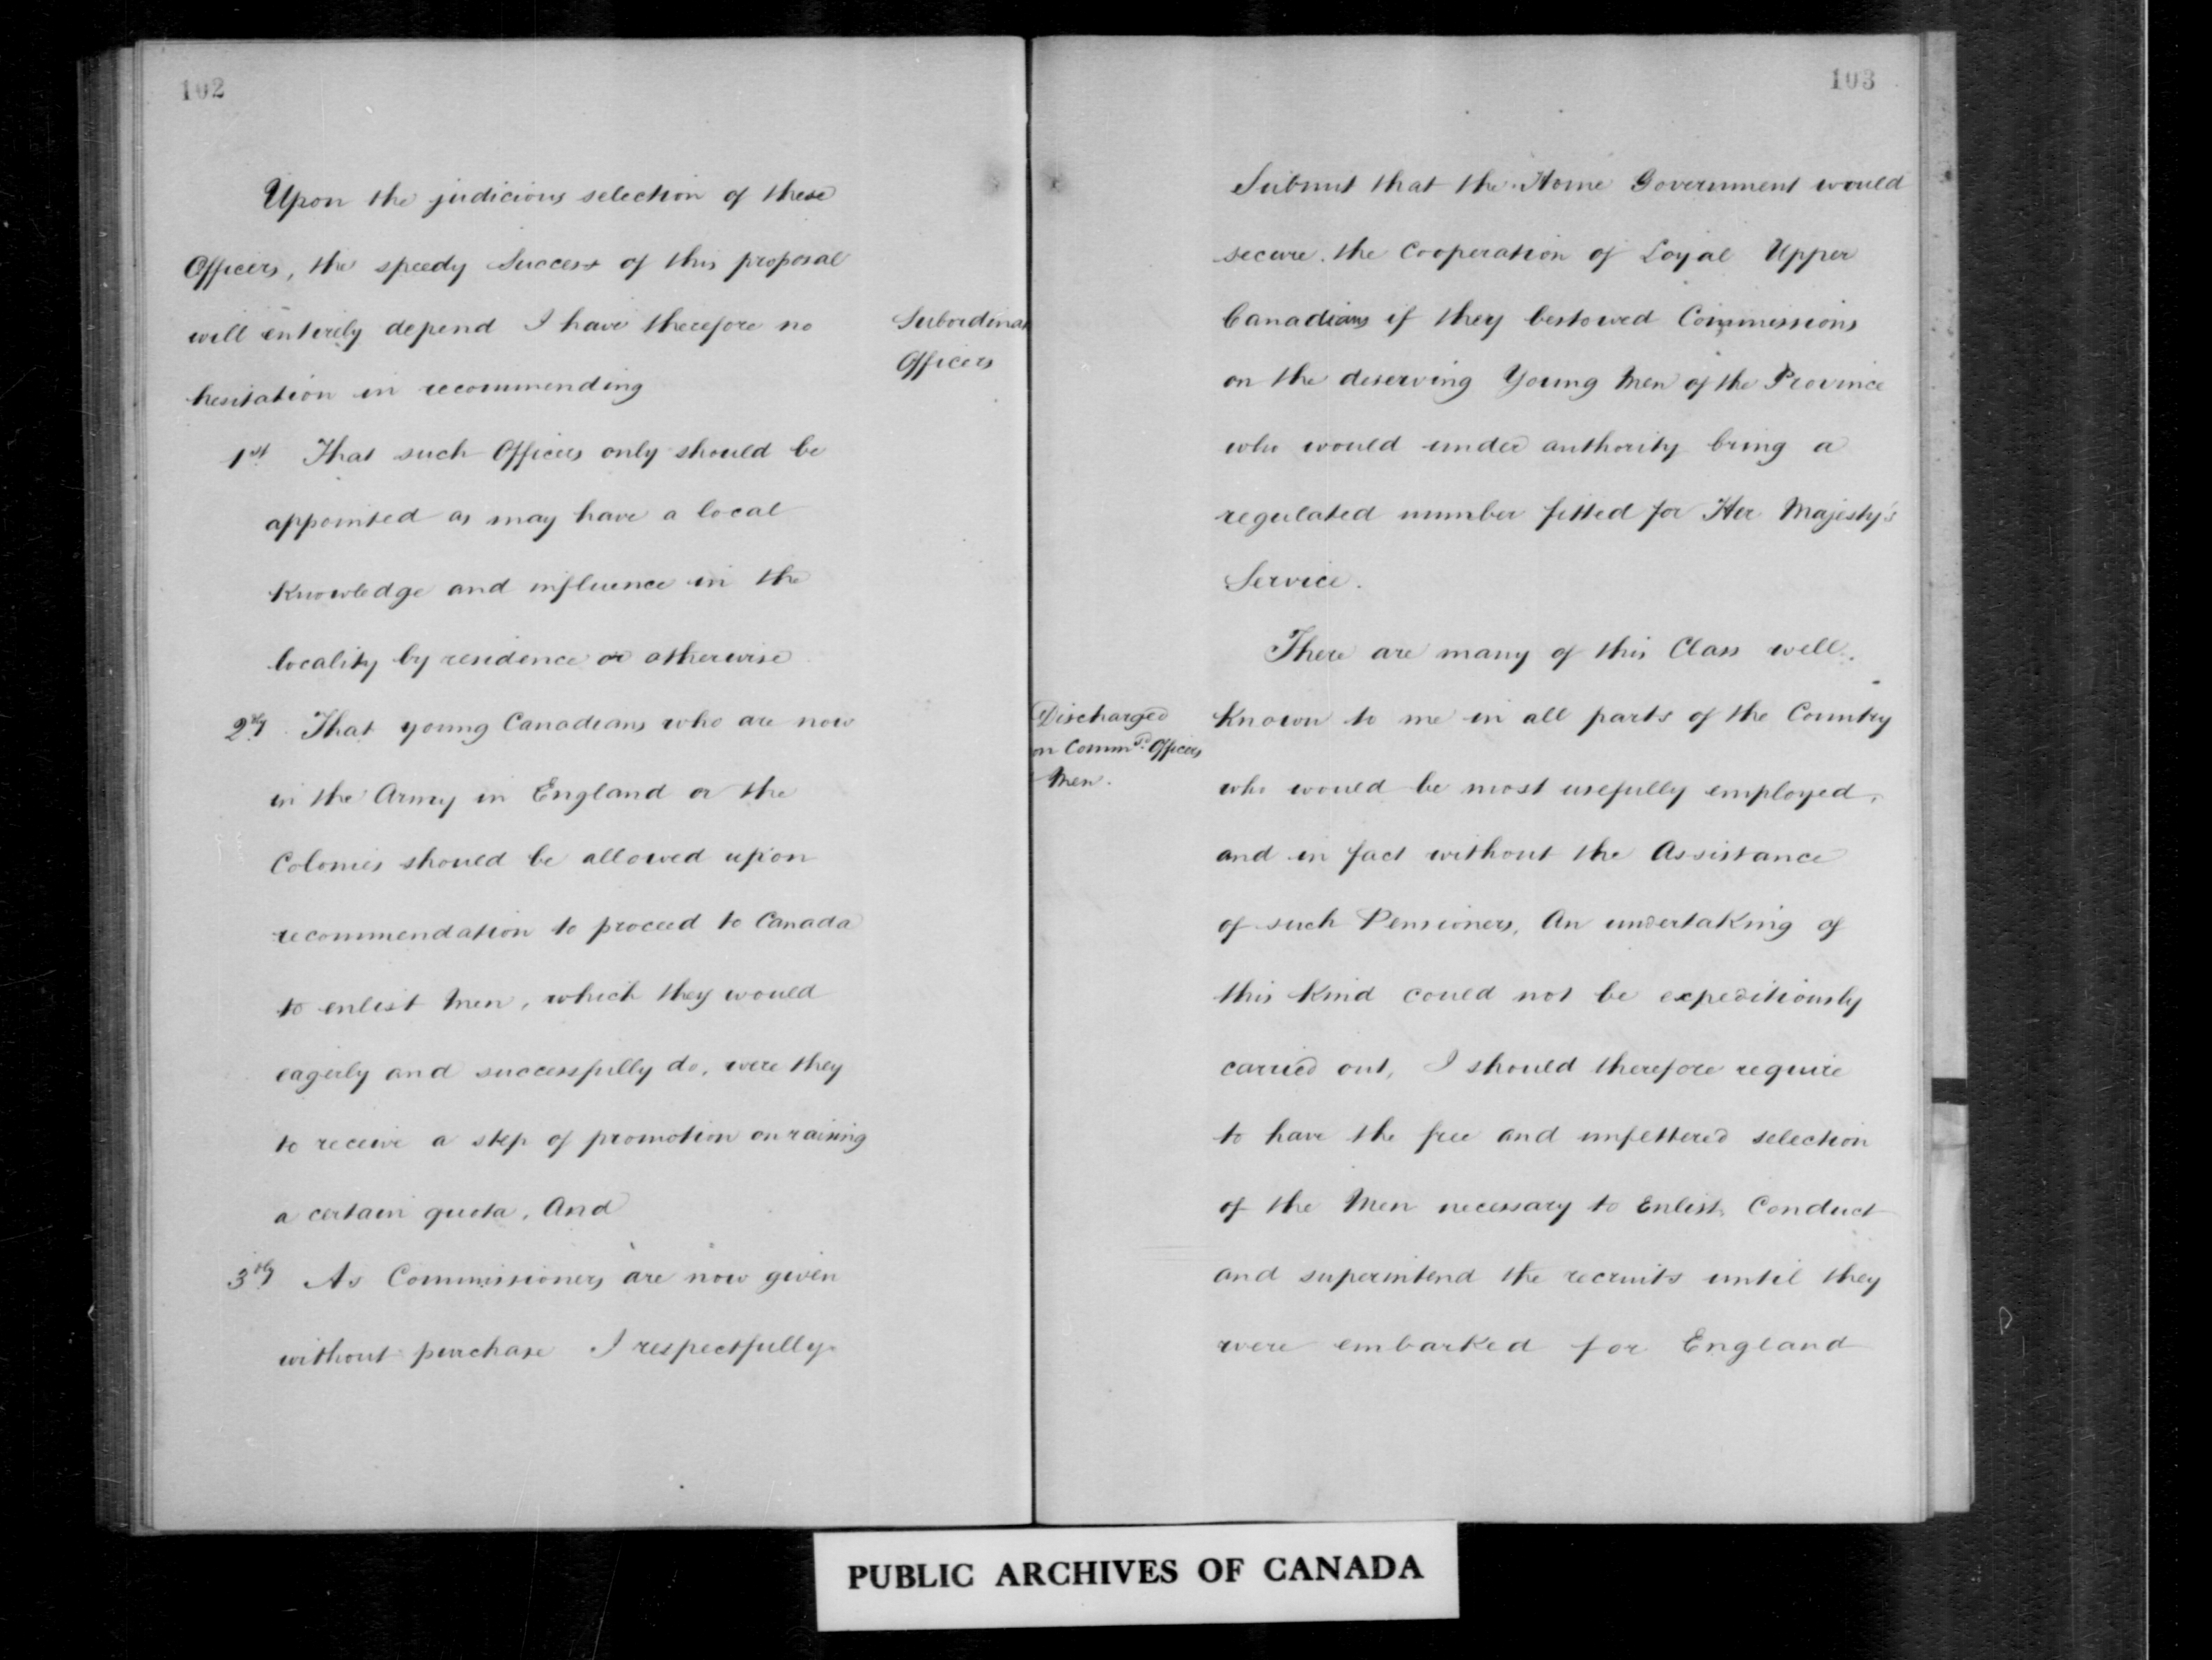 102
Upon the judicious selection of these
Officers, the speedy Success of this proposal
will entirely depend I have therefore no
hesitation in recommending
1st That such Officers only should be
appointed as may have a local
Knowledge and influence in the
locality by residence or otherwise
2dly That young Canadians who are now
in the Army in England or the
Colonies should be allowed upon
recommendation to proceed to Canada
to enlist Men, which they would
eagerly and successfully do, were they
to receive a step of promotion on raising
a certain quota, And
3dly As Commissioners are now given
without purchase I respectfully
Subordinat
Officers
103
Submit that the Home Government would
secure the Cooperation of Loyal Upper
Canadians if they bestowed Commissions
on the deserving Young Men of the Province
who would under authority bring a
regulated number fitted for Her Majesty's
Service.
There are many of this Class well
Known to me in all parts of the Country
who would be most usefully employed,
and in fact without the Assistance
of such Pensioners, An undertaking of
this Kind could not be expeditiously
carried out, I should therefore require
to have the free and unfettered selection
of the Men necessary to Enlist, Conduct
and superintend the recruits until they
were embarked for England
Discharged
on Commd. Officers
Men.
PUBLIC ARCHIVES OF CANADA